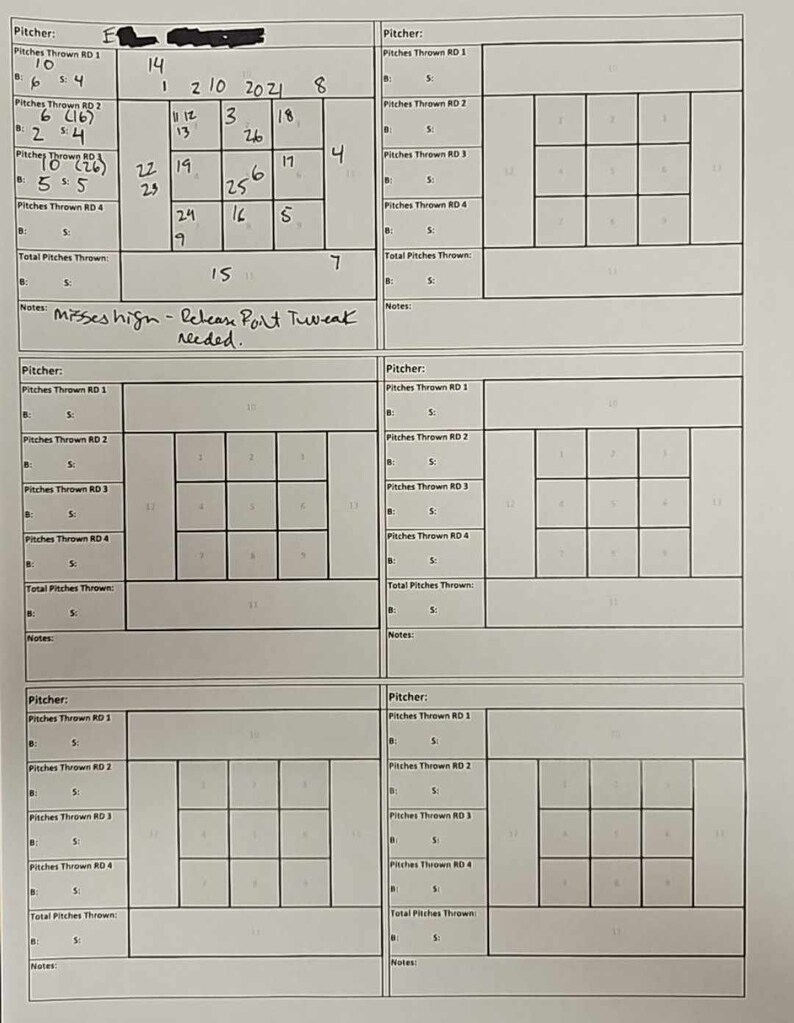 Pitcher: E
Pitches Thrown RD 1
10
B: 6 S: 4
14
1 2 10 20 21 8
Pitches Thrown RD 2
6 (16)
B: 2 S: 4
Pitches Thrown RD 3
10 (26)
B: 5 S: 5
Pitches Thrown RD 4
B: S:
22
23
11 12
13
3
26
18
19
25 6
17
24
9
16
5
4
Total Pitches Thrown:
B: S:
15 11
7
Notes: Misses high - Release Point Tweak
needed.
Pitcher:
Pitches Thrown RD 1
B: S:
10
Pitches Thrown RD 2
B: S:
Pitches Thrown RD 3
B: S:
Pitches Thrown RD 4
B: S:
1 2 3
12 4 5 6 13
7 8 9
Total Pitches Thrown:
B: S:
11
Notes:
Pitcher:
Pitches Thrown RD 1
B: S:
10
Pitches Thrown RD 2
B: S:
Pitches Thrown RD 3
B: S:
Pitches Thrown RD 4
B: S:
1 2 3
12 4 5 6 13
7 8 9
Total Pitches Thrown:
B: S:
11
Notes:
Pitcher:
Pitches Thrown RD 1
B: S:
10
Pitches Thrown RD 2
B: S:
Pitches Thrown RD 3
B: S:
Pitches Thrown RD 4
B: S:
1 2 3
12 4 5 6 13
7 8 9
Total Pitches Thrown:
B: S:
11
Notes:
Pitcher:
Pitches Thrown RD 1
B: S:
10
Pitches Thrown RD 2
B: S:
Pitches Thrown RD 3
B: S:
Pitches Thrown RD 4
B: S:
Total Pitches Thrown:
B: S:
11
Notes:
Pitcher:
Pitches Thrown RD 1
B: S:
10
Pitches Thrown RD 2
B: S:
Pitches Thrown RD 3
B: S:
Pitches Thrown RD 4
B: S:
Total Pitches Thrown:
B: S:
11
Notes: